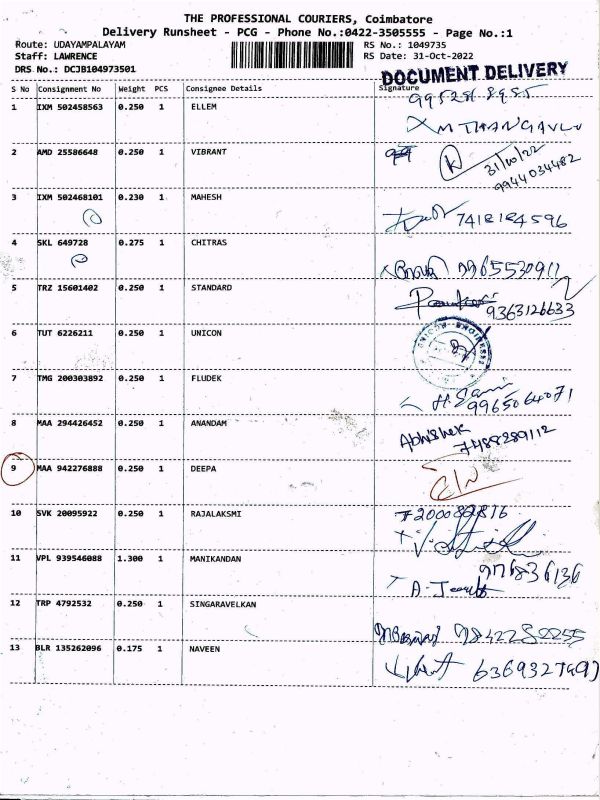 THE PROFESSIONAL COURIERS, Coimbatore
Delivery Runsheet - PCG - Phone No.:0422-3505555 - Page No.:1
Route: UDAYAMPALAYAM RS No.: 1049735
Staff: LAWRENCE RS Date: 31-Oct-2022
DRS No.: DCJB104973501
DOCUMENT DELIVERY
S No Consignment No Weight PCS Consignee Details Signature
1 IXM 502458563 0.250 1 ELLEM
M THANGAVLU
2 AMD 25586648 0.250 1 VIBRANT
31/10/22
9944034482
3 IXM 502468101 0.230 1 MAHESH
7418184596
4 SKL 649728 0.275 1 CHITRAS
9965530911
5 TRZ 15601402 0.250 1 STANDARD
9363126633
6 TUT 6226211 0.250 1 UNICON
7 TMG 200303892 0.250 1 FLUDEK
9965064071
8 MAA 294426452 0.250 1 ANANDAM
Abhishek
7488289112
9 MAA 942276888 0.250 1 DEEPA
10 SVK 20095922 0.250 1 RAJALAKSMI
11 VPL 939546088 1.300 1 MANIKANDAN
12 TRP 4792532 0.250 1 SINGARAVELKAN
13 BLR 135262096 0.175 1 NAVEEN